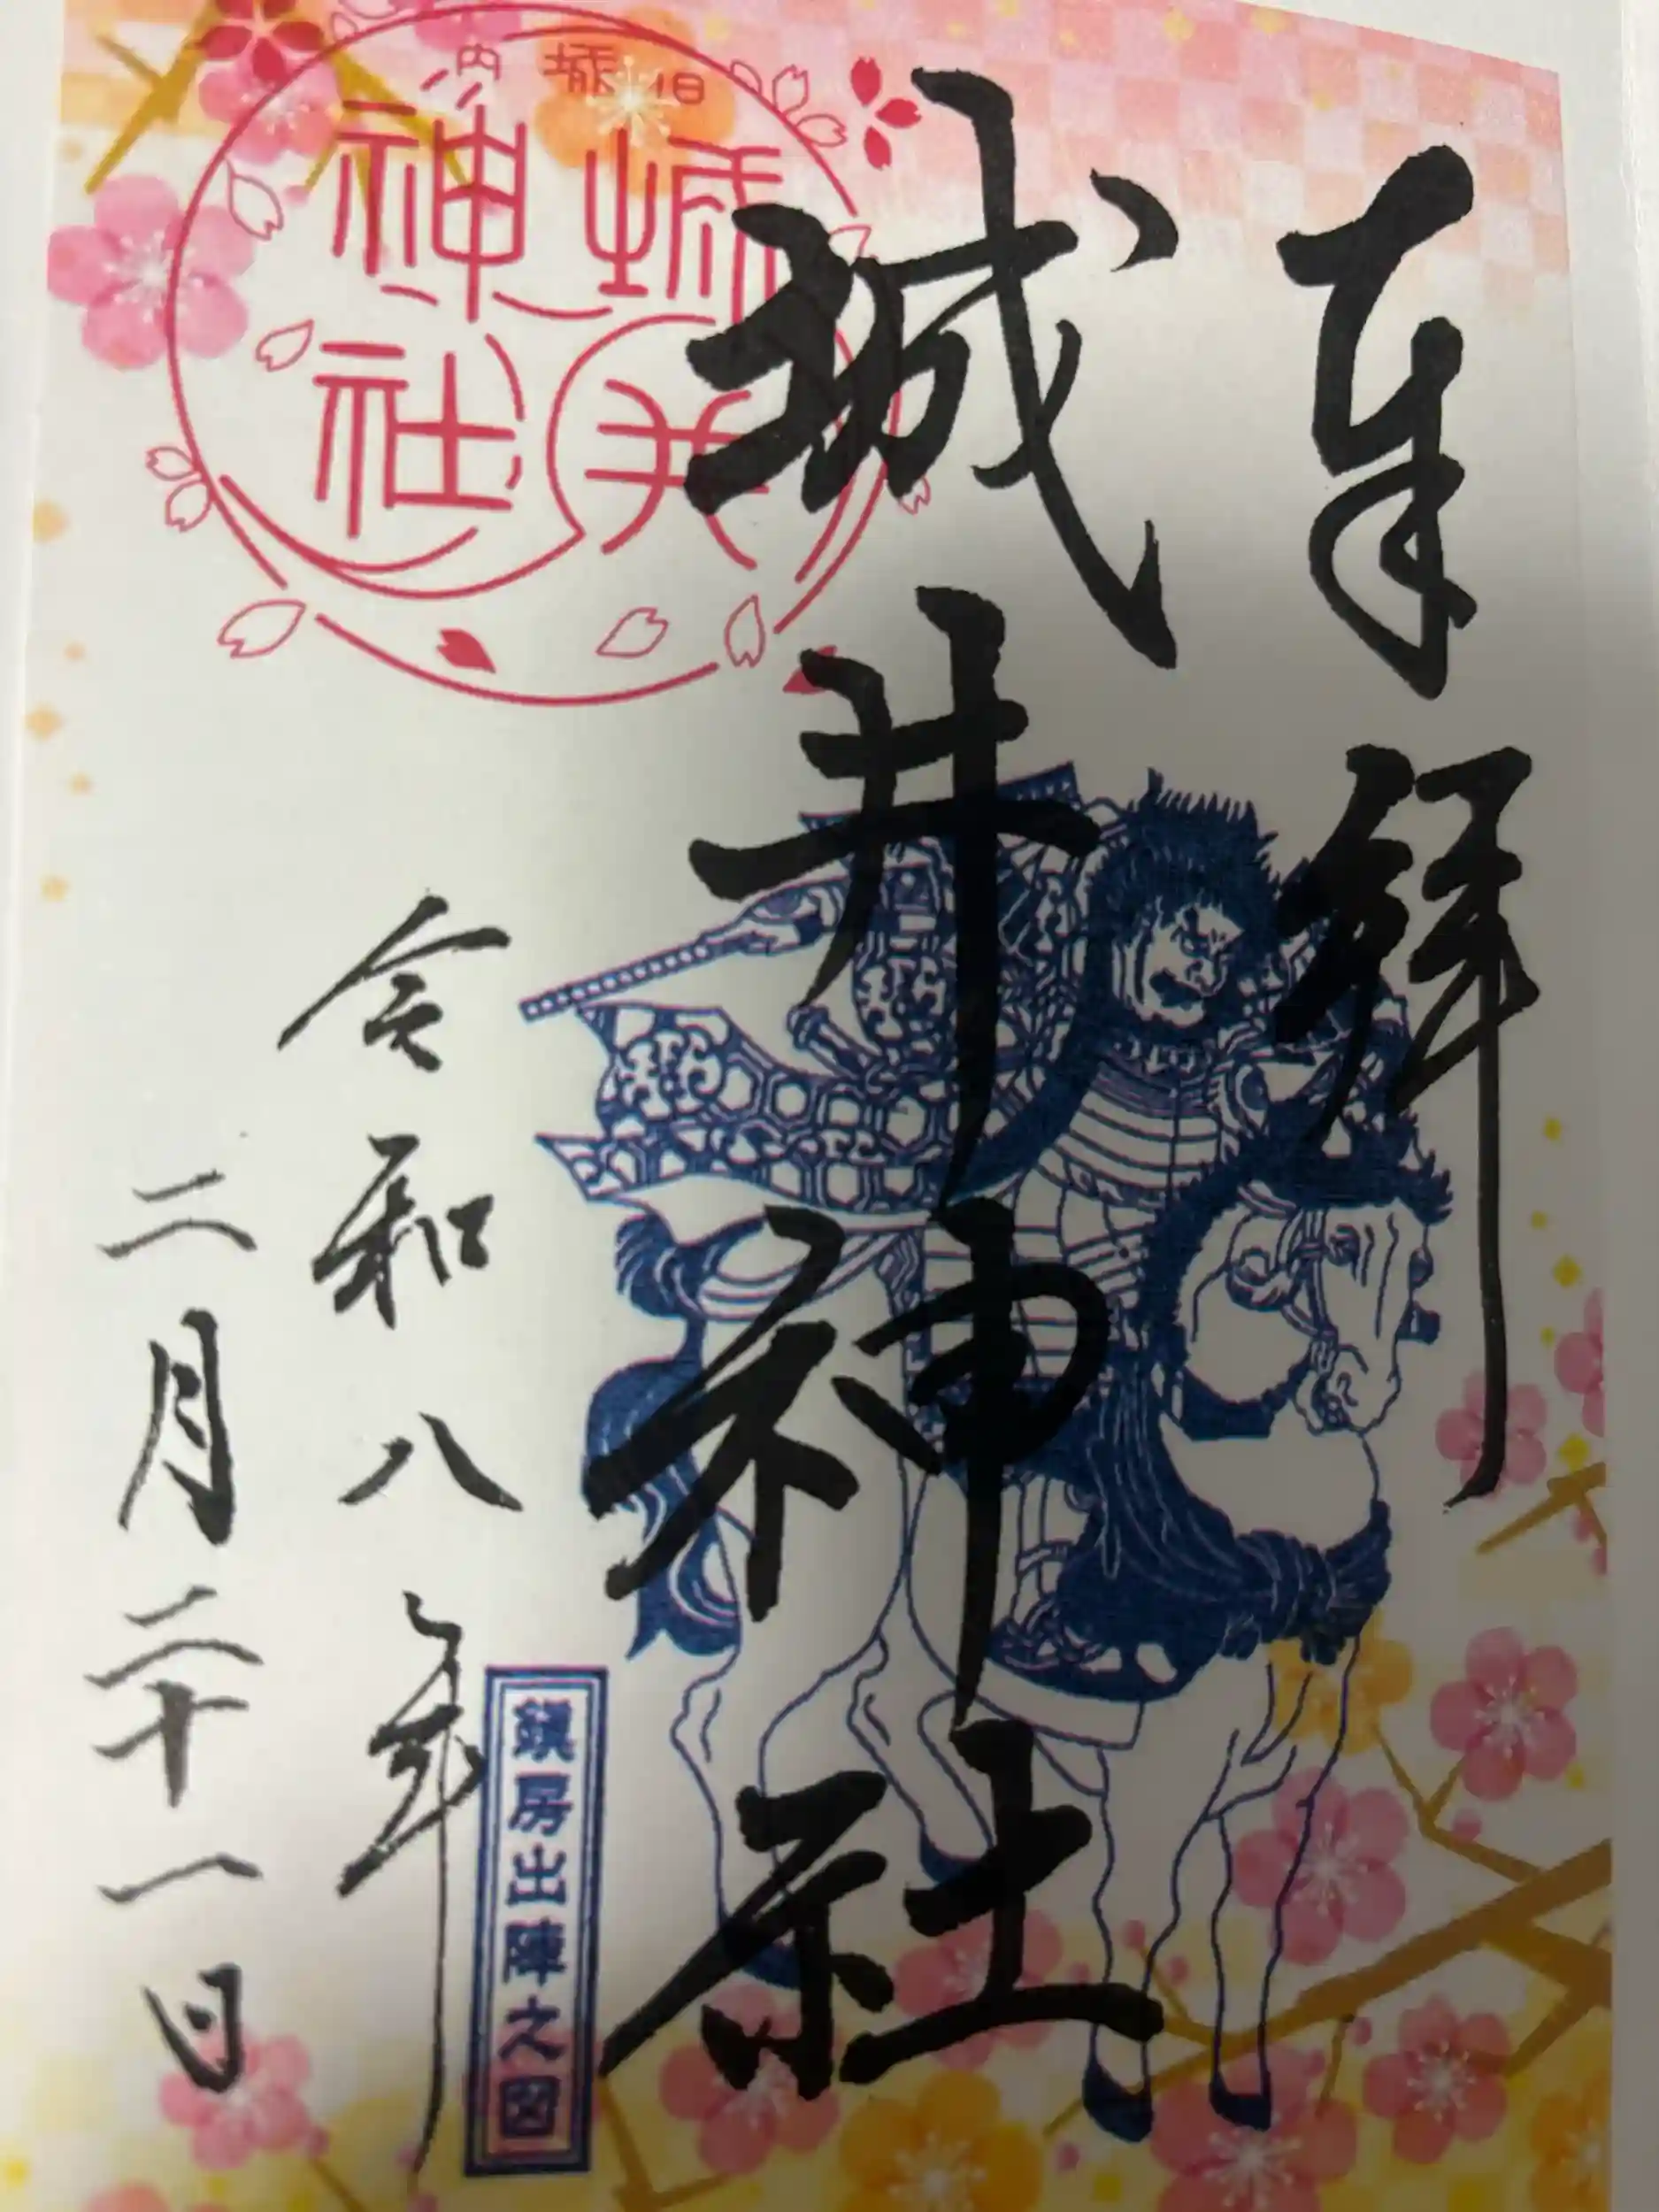 奉拝
城井神社
令和八年
二月二十一日
旧城内
城井神社
鎮房出陣之図